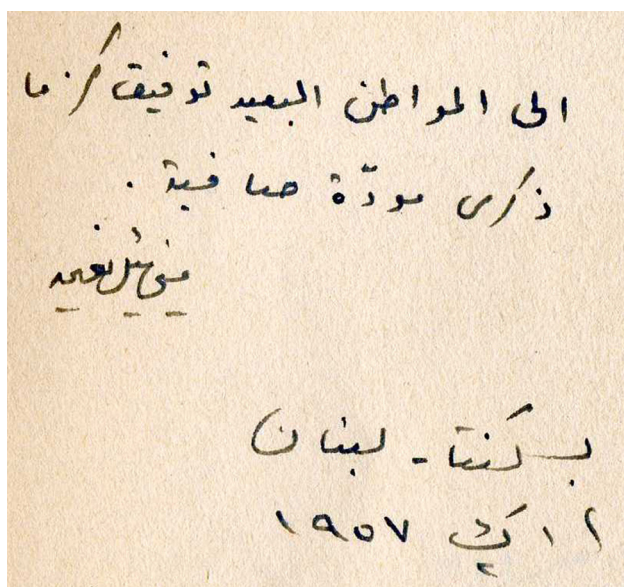 الى المواطن البعيد توفيق كزما
ذكرى مودّة صافية .
ميخائيل نعيمه
بسكنتا - لبنان
١ ك ١٩٥٧